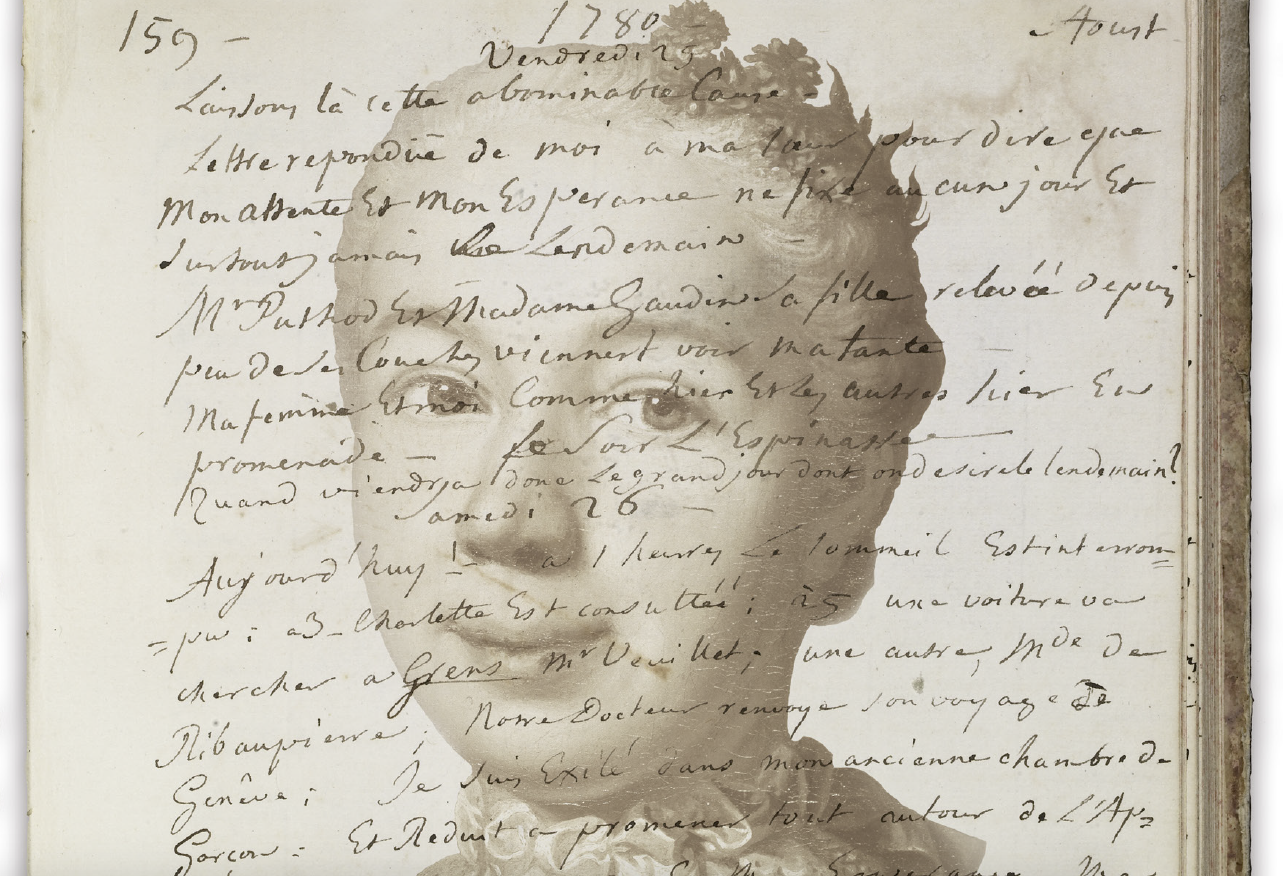 159 - 1780 - Aoust
Vendredi 25
Laissons là cette abominable Cause -
Lettre repondüe de moi à ma sœur pour dire que
Mon attente Et mon Esperance ne fixe aucun jour Et
surtout jamais Le Lendemain -
Mr Puthod Et Madame Gaudin sa fille relevéé depuis
peu de ses Couches viennent voir ma tante
Ma femme Et moi Comme hier Et les autres hier En
promenade - Le Soir L'Espinasse
Quand viendra donc Le grand jour dont on desire le lendemain?
Samedi 26 -
Aujourd'huy ! - a 1 heures Le sommeil Est interrom=
=pu : a 3 - Charlette Est consultéé ; à 5 une voiture va
chercher a Grens Mr Veuillet ; une autre, Mde de
Ribaupierre ; Notre Docteur renvoye son voyage de
Genêve ; Je suis Exilé dans mon ancienne chambre de
Garcon : Et Reduit a promener tout autour de L'Ap=